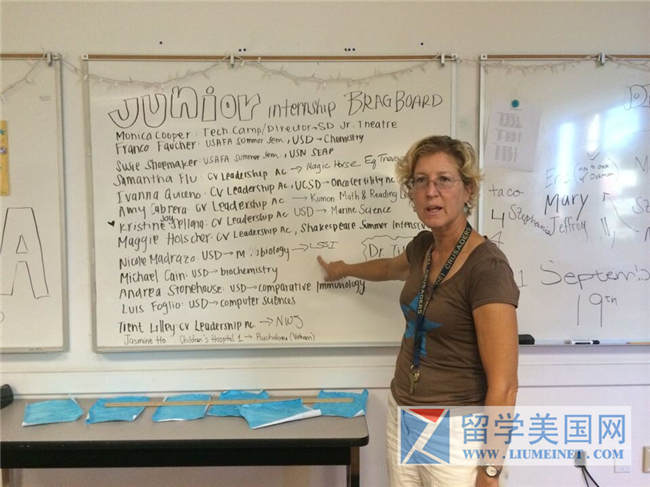 JUNIOR internship BRAG BOARD
Monica Cooper: Tech Camp/Director → SD Jr. Theatre
Franco Faucher: USAFA Summer Sem., USD → Chemistry
Susie Shoemaker: USAFA Summer Sem, USN SEAP
Samantha Flu CV Leadership Ac → Magic Horse Eq
CV Leadership Ac, UCSD →
Amy Cabrera CV Leadership Ac → Kumon Math & Reading
Joy
♥ Kristine CV Leadership Ac, USD → Marine Science
Maggie CV Leadership Ac, Shakespeare Summer
Nicole Madrazo USD → → LSSI
Michael Cain: USD → biochemistry
Andrea Stonehouse: USD → comparative immunology
Luis Foglio: USD → computer sciences
Trent Lilley CV Leadership Ac → NWJ
Jasmine Ho Children's Hospital 1 → (Vietnam)
Dr.
A
taco
4
Stephanie
Mary
Jeffrey
September
19th
留学美国网
WWW.LIUMEINET.COM